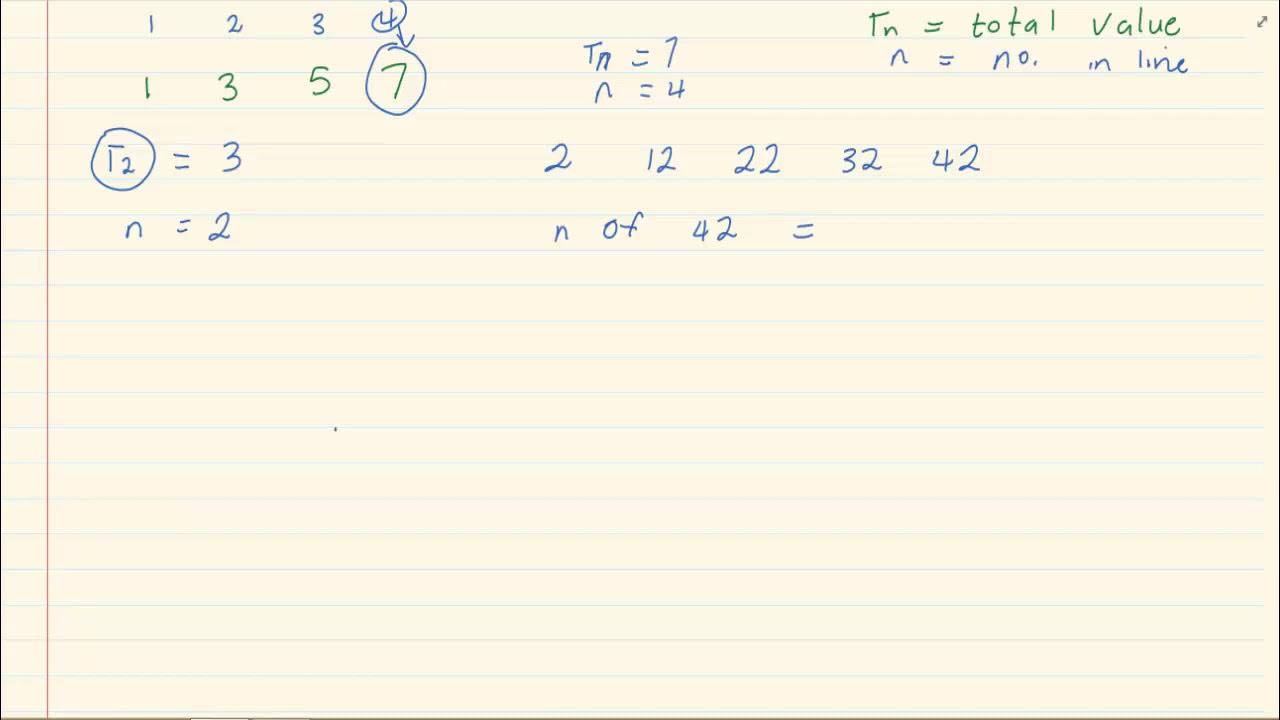 1 2 3 4
1 3 5 7
Tn = 7
n = 4
Tn = total value
n = no. in line
T2 = 3
n = 2
2 12 22 32 42
n of 42 =